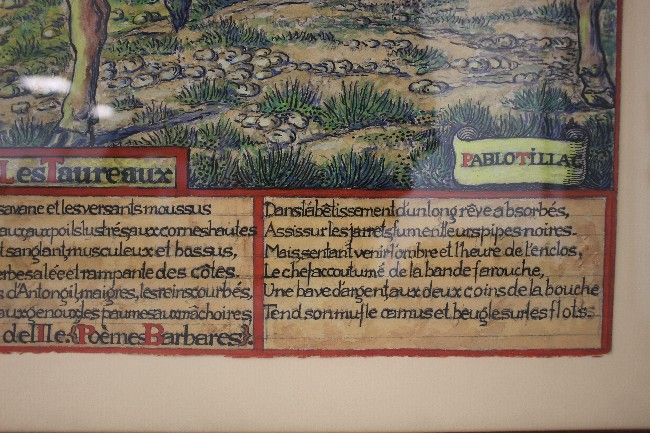 PABLO TILLAC
Les Taureaux
savane et les versants moussus
aux poils lustrés aux cornes hautes
t sanglant, musculeux et bossus,
rbe salée et rampante des côtes.
s d'Antongil, maigres, les reins courbés,
aux genoux, les paumes aux mâchoires
de l'Ile. (Poèmes Barbares).
Dans l'abêtissement d'un long rêve absorbés,
Assis sur les jarrets, fument leurs pipes noires.
Mais sentant venir l'ombre et l'heure de l'enclos,
Le chef accoutumé de la bande farouche,
Une bave d'argent, aux deux coins de la bouche
Tend son mufle camus et beugle sur les flots.